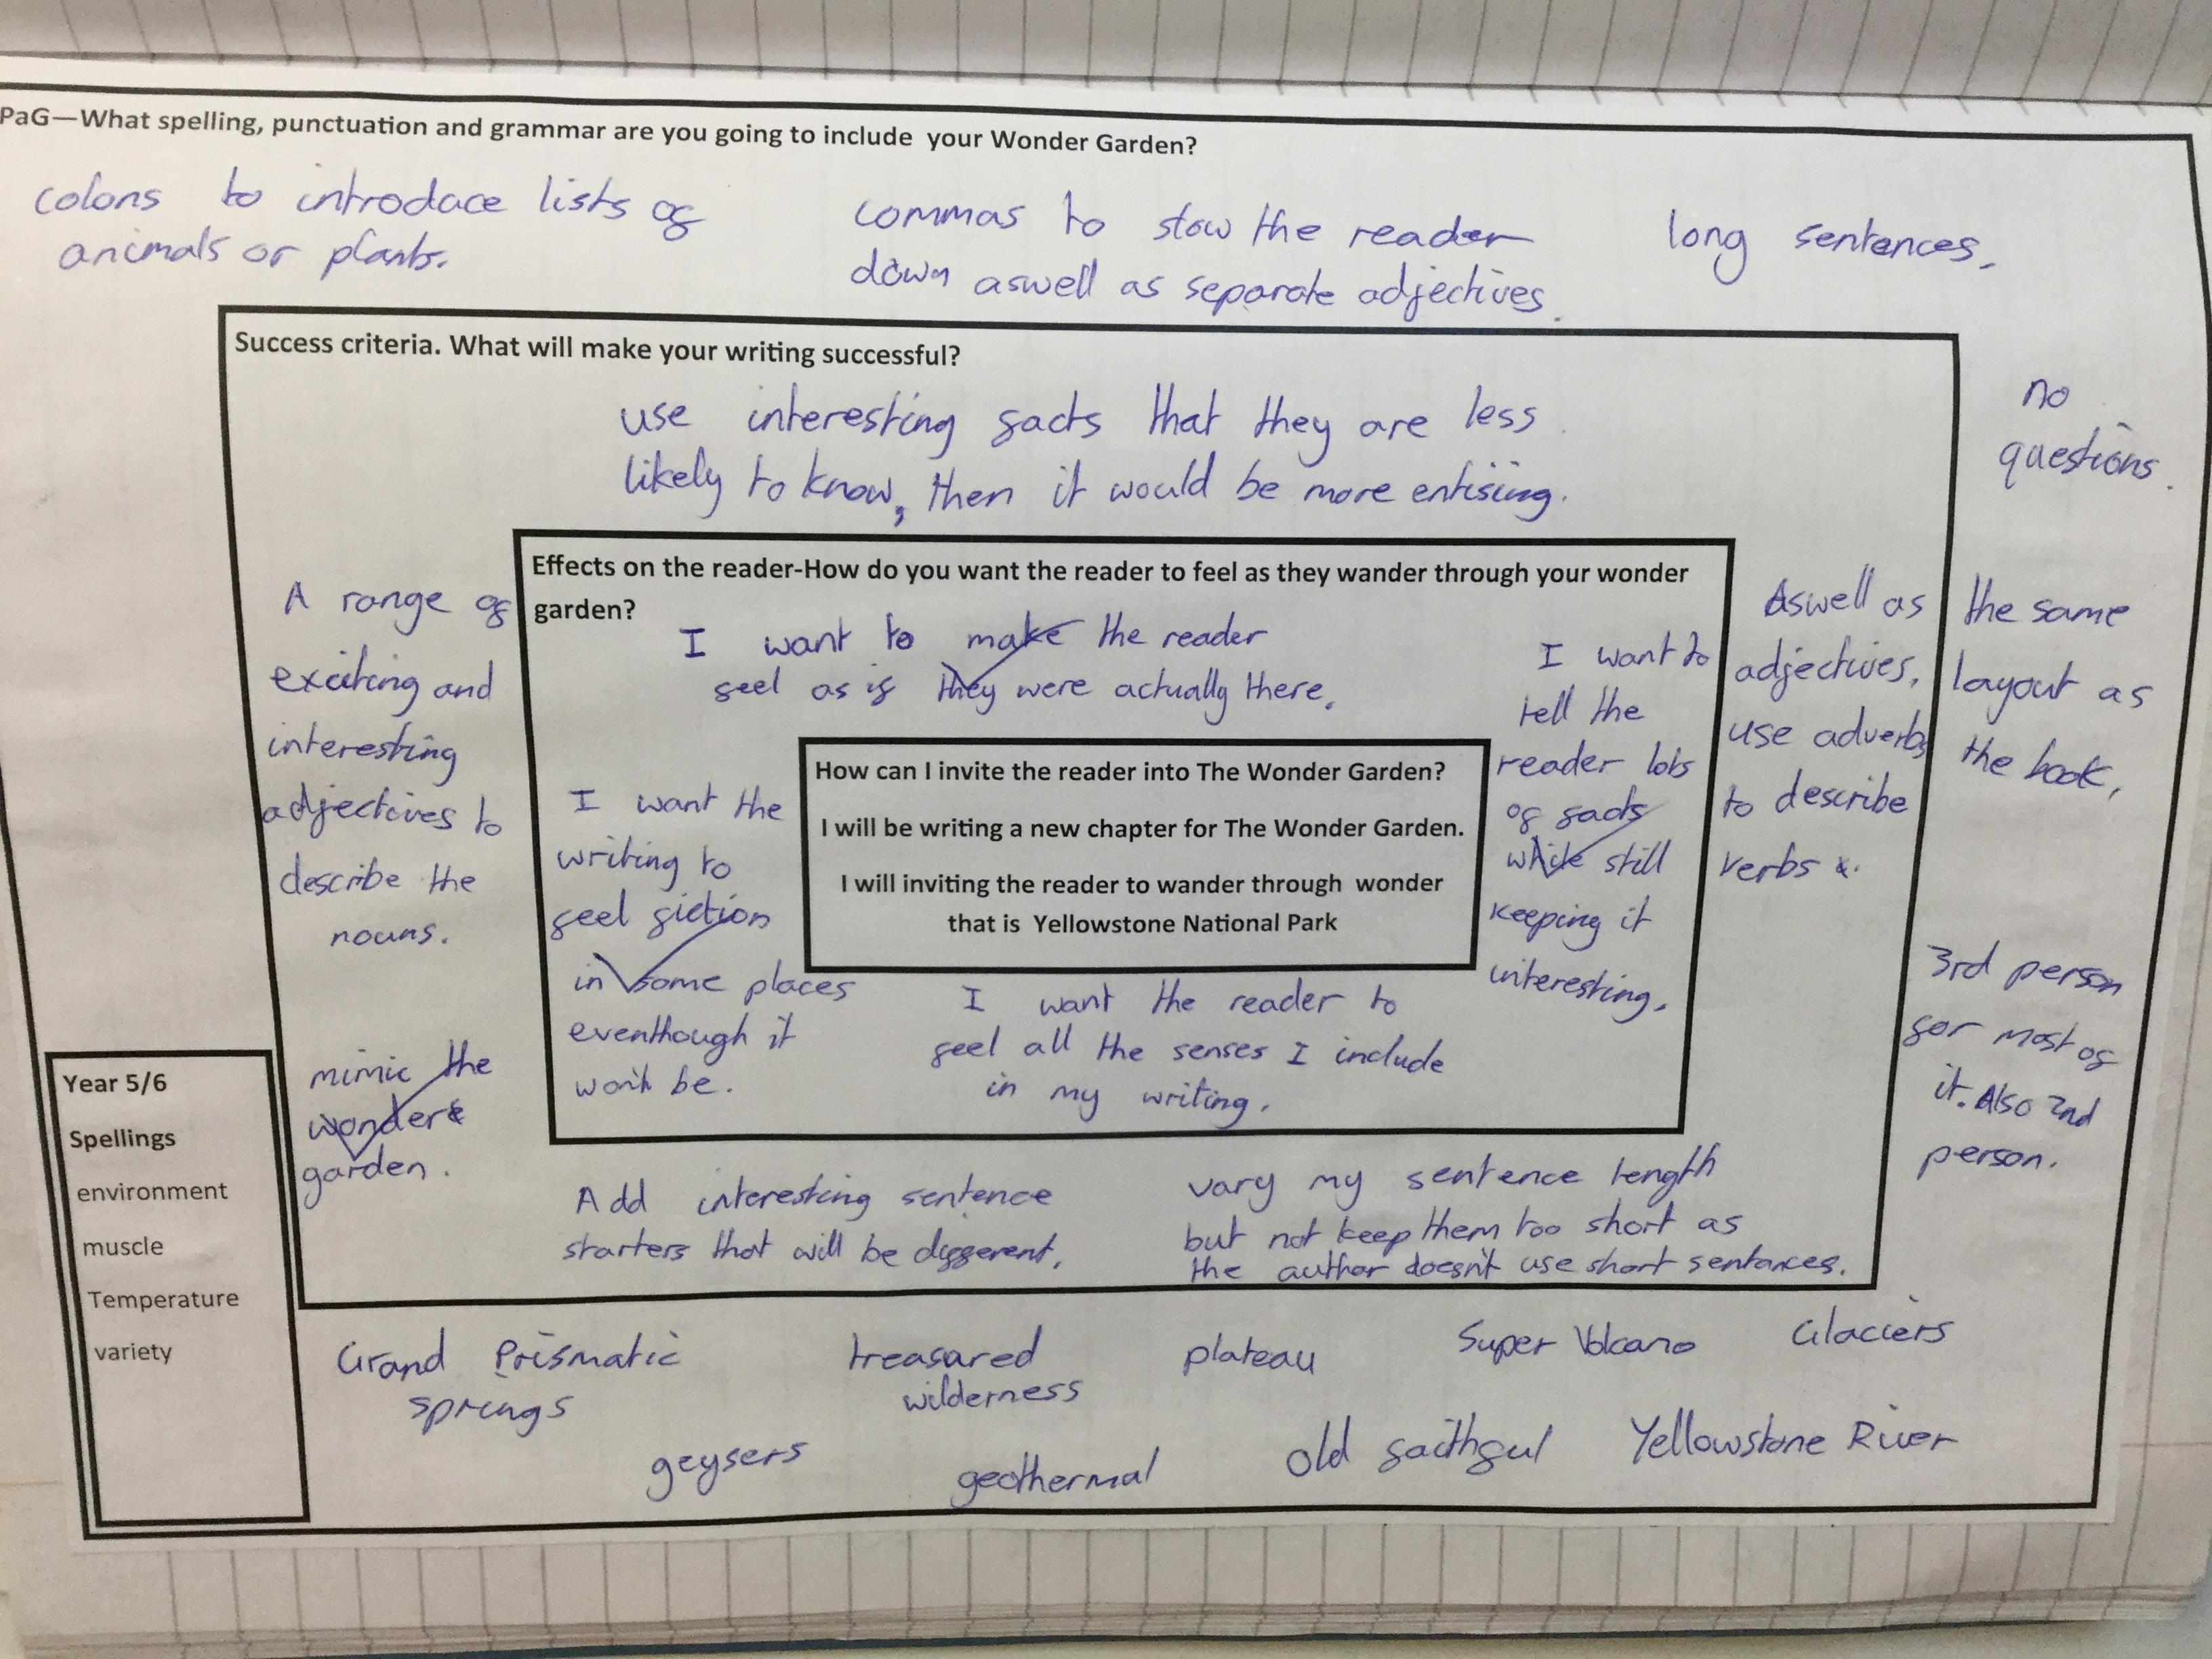 PaG—What spelling, punctuation and grammar are you going to include your Wonder Garden?
colons to introduce lists of
animals or plants.
commas to slow the reader
down aswell as separate adjectives.
long sentences.
no
questions.
the same
layout as
the book,
3rd person
for most of
it. Also 2nd
person.
Success criteria. What will make your writing successful?
use interesting facts that they are less
likely to know, then it would be more entising.
A range of
exciting and
interesting
adjectives to
describe the
nouns.
mimic the
wonder
garden.
Aswell as
adjectives,
use adverbs
to describe
verbs
Add interesting sentence
starters that will be different.
vary my sentence length
but not keep them too short as
the author doesn't use short sentances.
Effects on the reader-How do you want the reader to feel as they wander through your wonder
garden?
I want to make the reader
feel as if they were actually there.
I want the
writing to
feel fiction
in some places
eventhough it
won't be.
I want to
tell the
reader lots
of facts
while still
keeping it
interesting.
I want the reader to
feel all the senses I include
in my writing.
How can I invite the reader into The Wonder Garden?
I will be writing a new chapter for The Wonder Garden.
I will inviting the reader to wander through wonder
that is Yellowstone National Park
Year 5/6
Spellings
environment
muscle
Temperature
variety
Grand Prismatic
springs
treasured
wilderness
plateau
Super Volcano
Glaciers
geysers
geothermal
old faithful
Yellowstone River